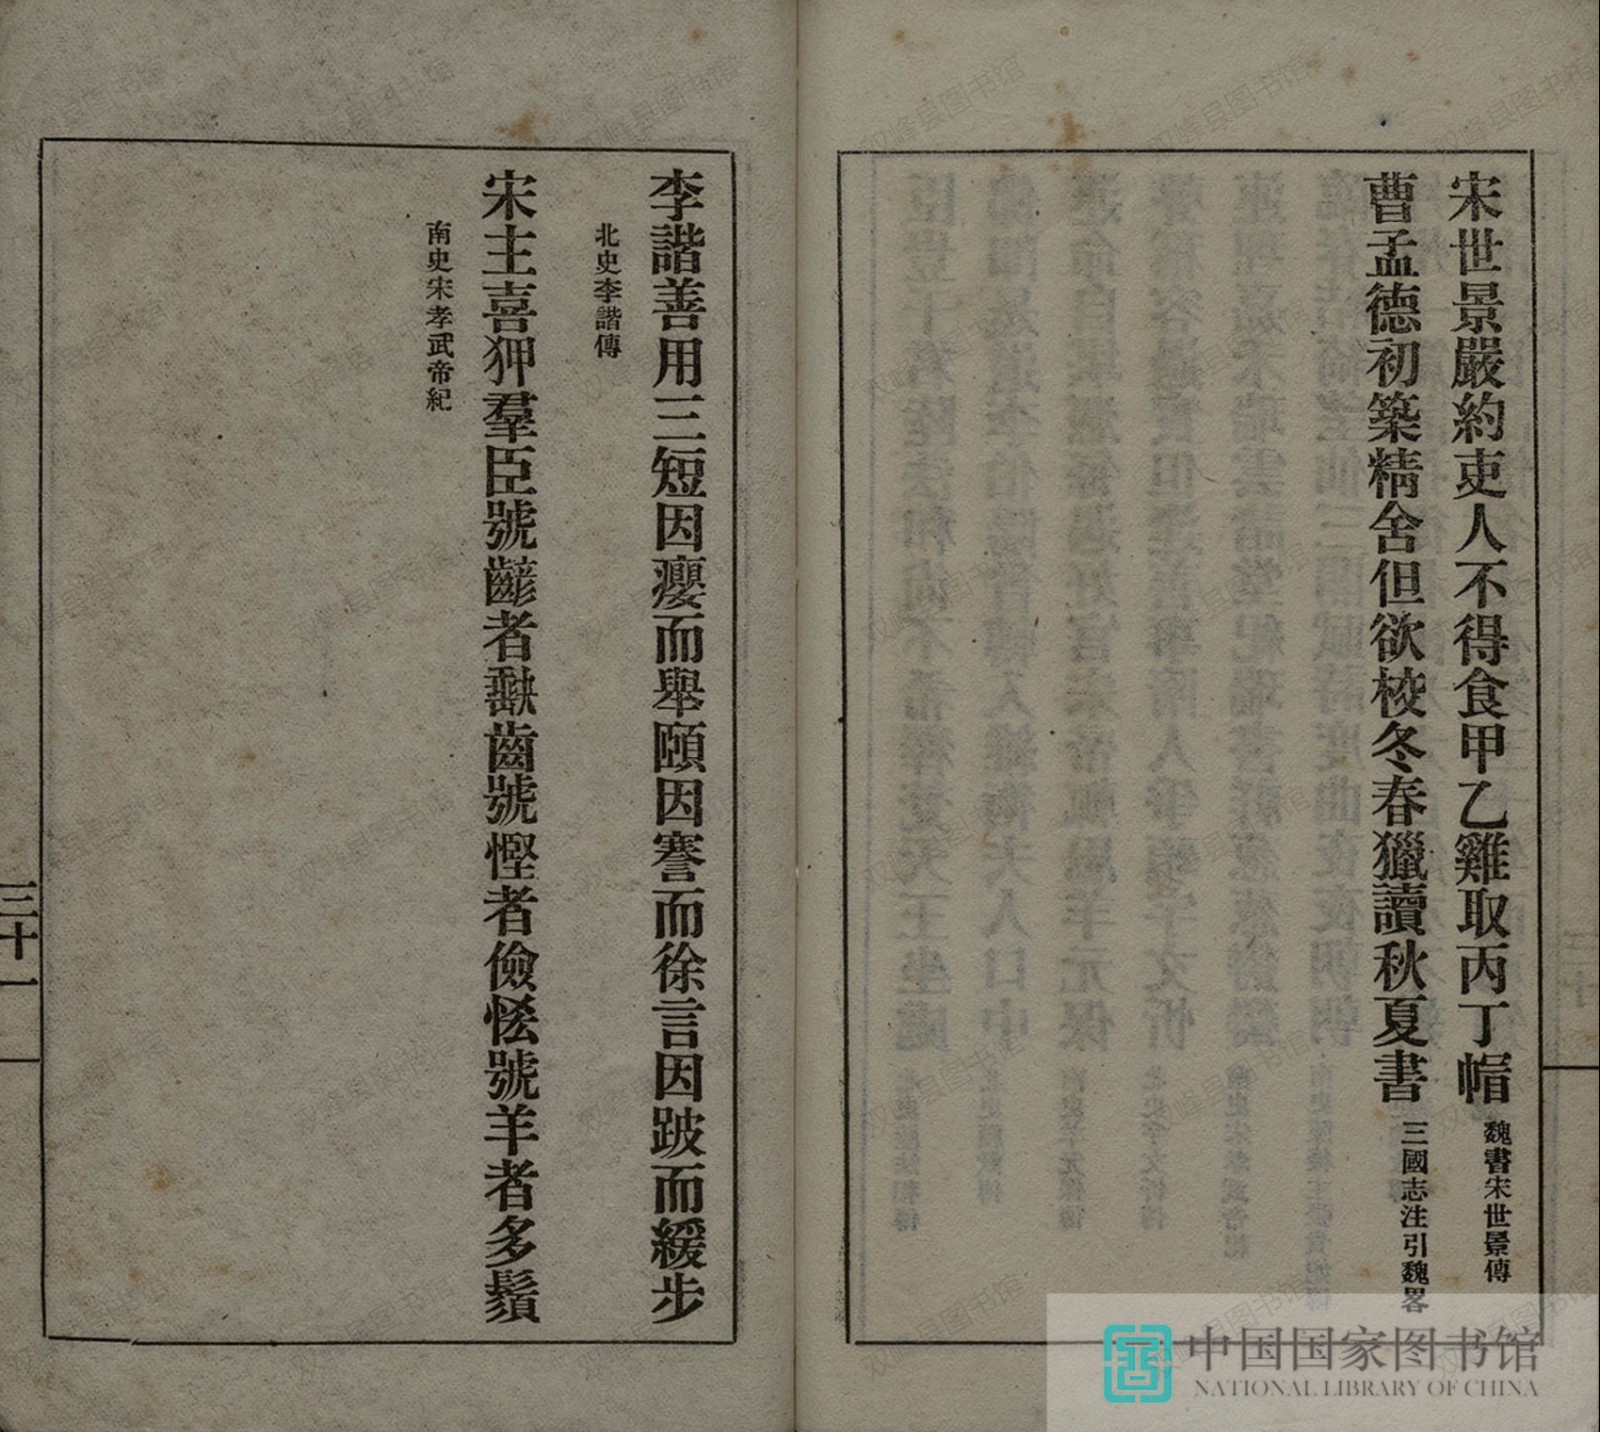 宋世景嚴約吏人不得食甲乙雞取丙丁帽 魏書宋世景傳
曹孟德初築精舍但欲校冬春獵讀秋夏書 三國志注引魏畧
李諧善用三短因癭而舉頤因謇而徐言因跛而緩步
北史李諧傳
宋主喜狎羣臣號齴者齾齒號慳者儉恡號羊者多鬚
南史宋孝武帝紀
三十一
中国国家图书馆
NATIONAL LIBRARY OF CHINA
双峰县图书馆